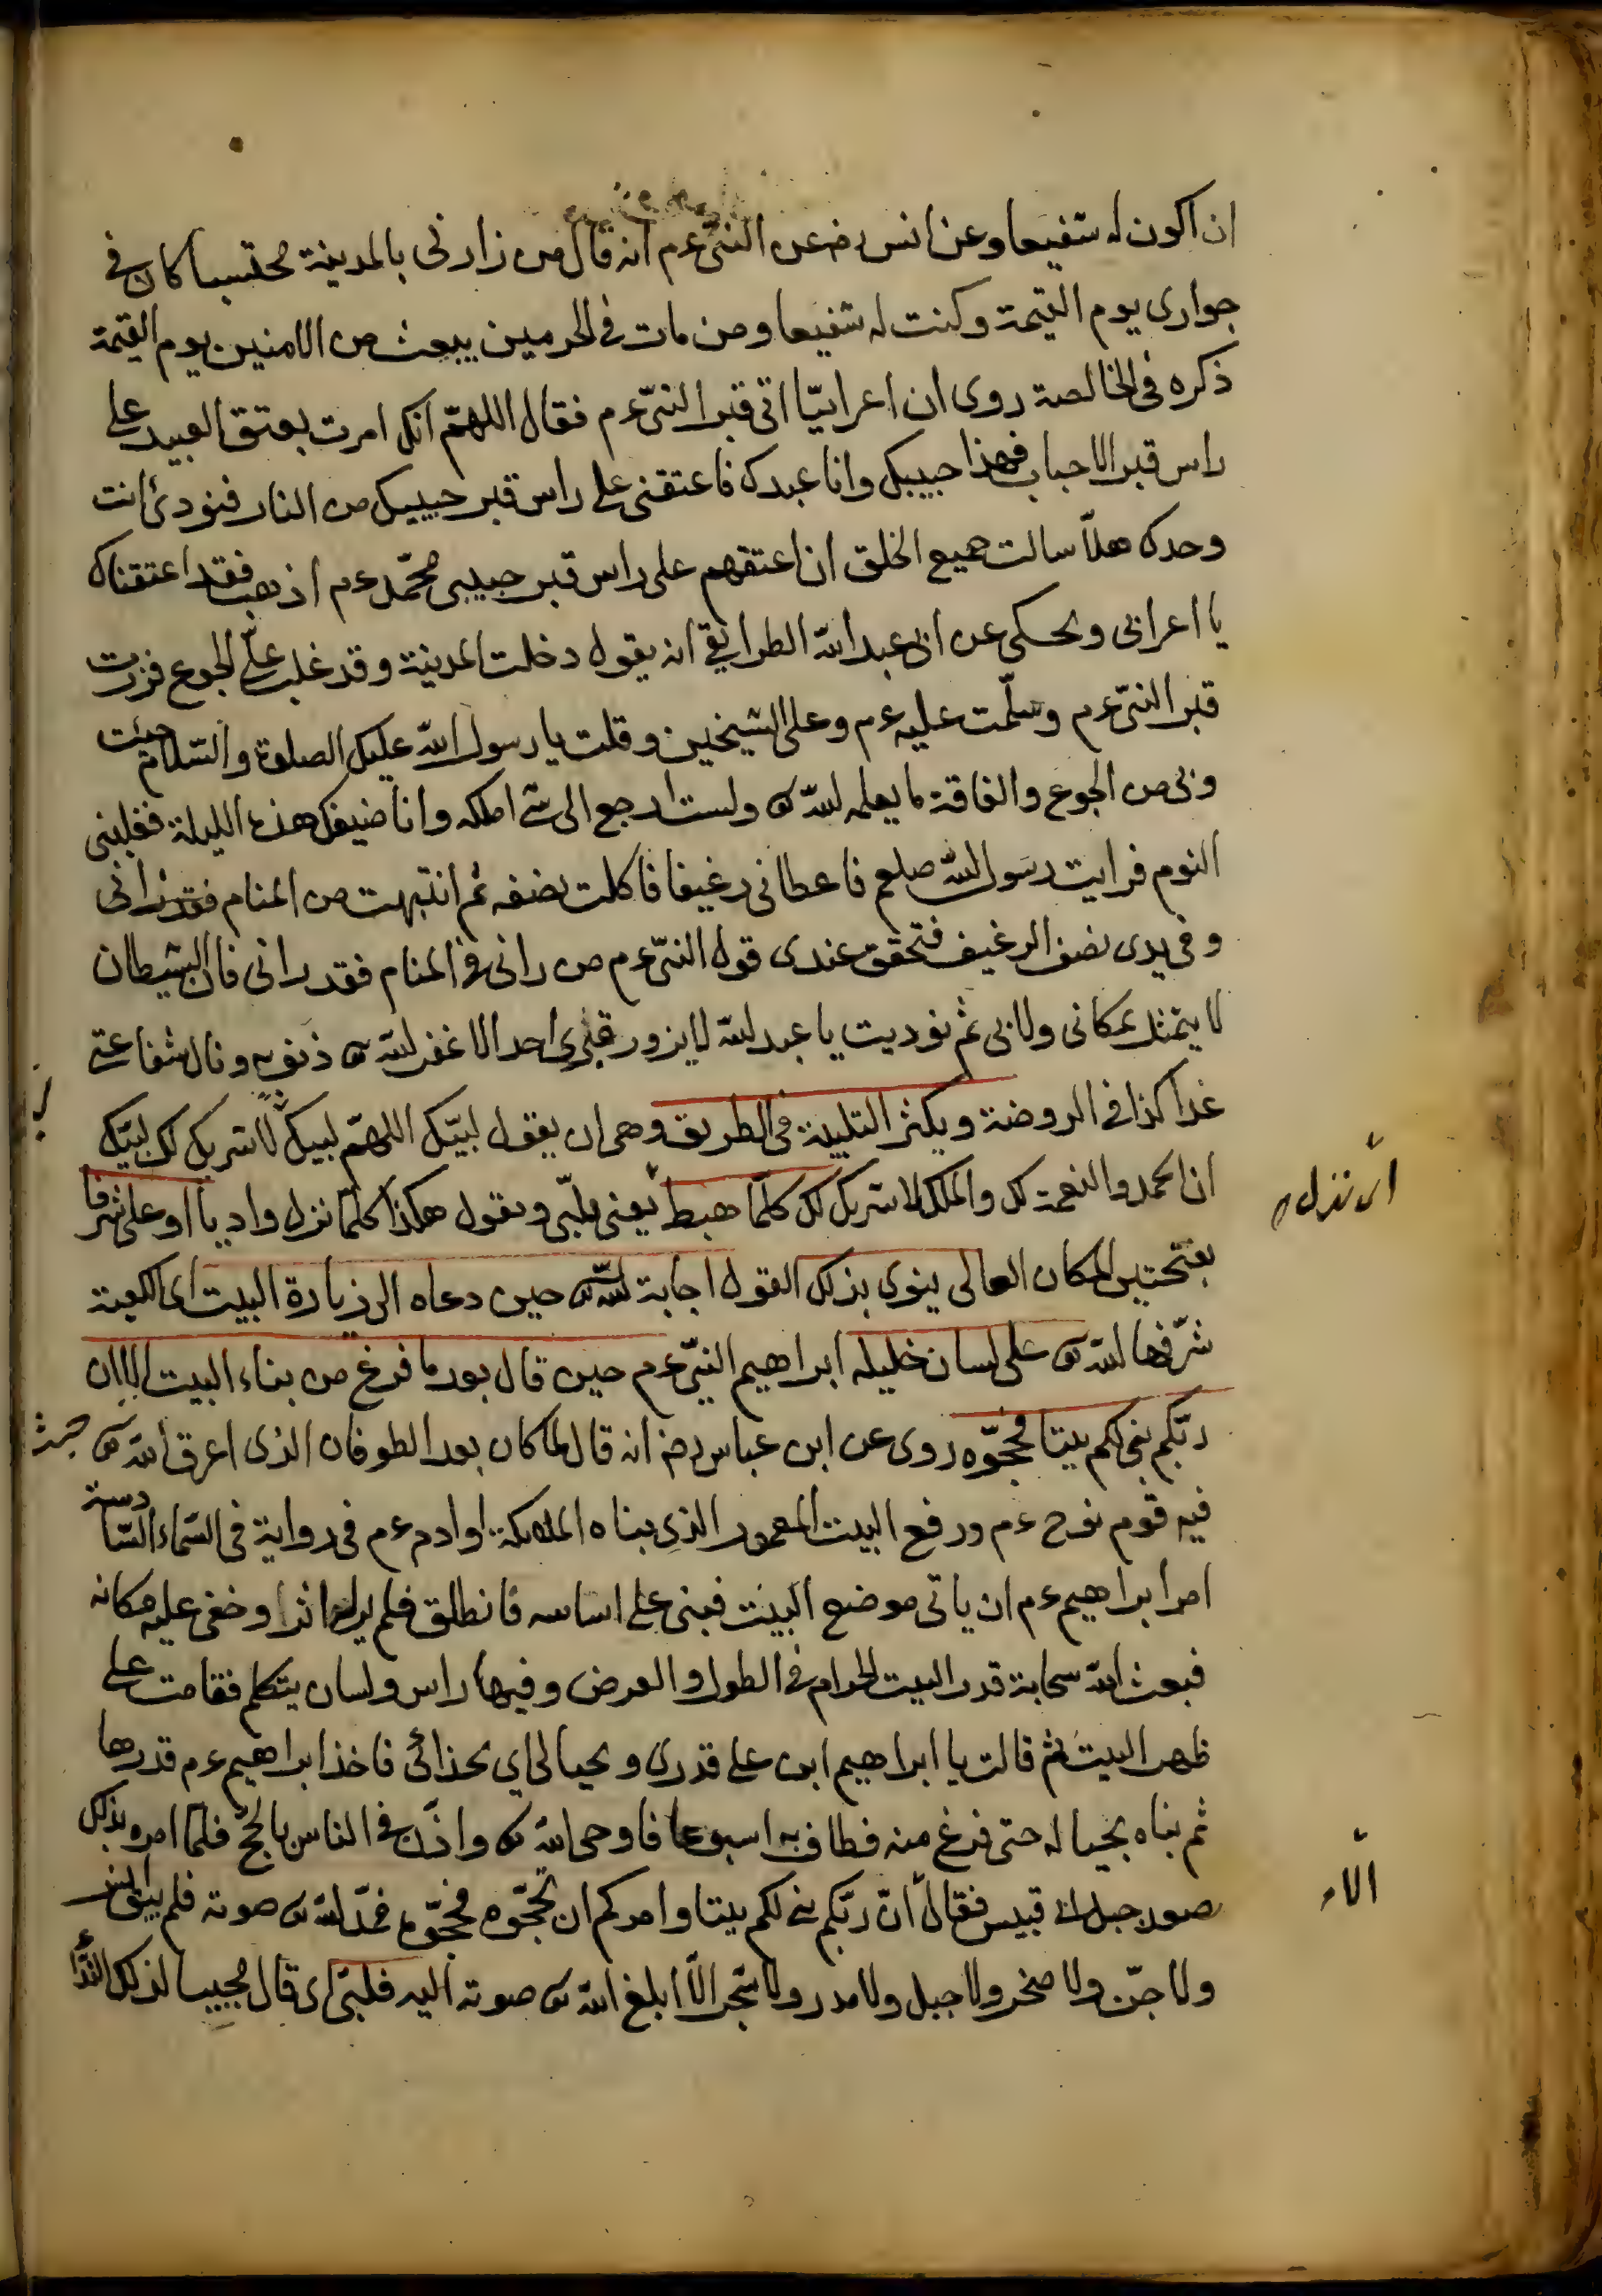 ان اكون له شفيعا وعن انس رضہ عن النبىّ ءم انه قال من زارنى بالمدينة محتسبا كان فى
جوارى يوم القيمة وكنت له شفيعا ومن مات فى الحرمين يبعث من الامنين يوم القيمة
ذكره فى الخالصة روى ان اعرابيّا اتى قبر النبىّ ءم فقال اللهمّ انك امرت بعتق العبيد على
راس قبر الاحباب فهذا حبيبك وانا عبدك فاعتقنى على راس قبر حبيبك من النار فنودئ انت
وحدك هلاّ سالت جميع الخلق ان اعتقهم على راس قبر حبيبى محمّد ءم اذهب فقد اعتقناك
يا اعرابى ويحكى عن ابى عبد الله الطرايقى انه يقول دخلت المدينة وقد غلب علىّ الجوع فزرت
قبر النبىّ ءم وسلّمت عليه ءم وعلى الشيخين وقلت يا رسول الله عليك الصلوة والسّلام جئت
وبى من الجوع والفاقة ما يعلمه الله تع ولست ارجع الى شئ املكه وانا ضيفك هذه الليلة فغلبنى
النوم فرايت رسول الله صلعم فاعطانى رغيفا فاكلت نصفه ثم انتبهت من المنام فقد رانى
وفى يدى نصف الرغيف فتحقق عندى قول النبىّ ءم من رانى فى المنام فقد رانى فان الشيطان
لا يتمثل بمكانى ولا بى ثم نوديت يا عبد الله لا يزور قبرى احد الا غفر الله تع ذنوبه ونال شفاعتى
غدا كذا فى الروضة ويكثر التلبية فى الطريق وهى ان يقول لبيّك اللهمّ لبيك لا شريك لك لبيّك
ان الحمد والنعمة لك والملك لا شريك لك كلّما هبط يعنى يلبّى ويقول هكذا كلّما نزل واديا او على شرفا
اى نزل م
بفتحتين المكان العالى ينوى بذلك القول اجابة الله تع حين دعاه الى زيارة البيت اى الكعبة
شرّفها الله تع على لسان خليله ابراهيم النبىّ ءم حين قال بعد ما فرغ من بناء البيت الا ان
ربّكم بنى لكم بيتا فحجّوه روى عن ابن عباس رضہ انه قال لما كان بعد الطوفان الذى اغرق الله تع
فيه قوم نوح ءم ورفع البيت المعمور الذى بناه الملئكة او ادم ءم فى رواية فى السّماء السّادسة
امر ابراهيم ءم ان ياتى موضع البيت فبنى على اساسه فانطلق فلم ير له اثرا وخفى عليه مكانه
فبعث الله سحابة قدر البيت الحرام فى الطول والعرض وفيها راس ولسان يتكلم فقامت على
ظهر البيت ثم قالت يا ابراهيم ابن على قدرى وبحيالى اي بحذائى فاخذ ابراهيم ءم قدرها
ثم بناه بحياله حتى فرغ منه فطاف به اسبوعا فاوحى الله تع واذّن فى الناس بالحجّ فلما امر بذلك
صعد جبل ابى قبيس فقال انّ ربّكم بنى لكم بيتا وامركم ان تحجّوه فحجّوه فمدّ الله تع صوته فلم يبق انس
الاء
ولا جنّ ولا صخر ولا جبل ولا مدر ولا شجر الاّ ابلغ الله تع صوته اليه فلبّى اى قال مجيبا لذلك النّداء